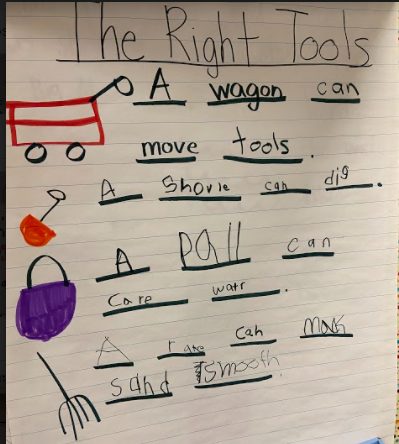 The Right Tools
A wagon can
move tools.
A Shovle can dig.
A pall can
Care watr.
A rake can mak
sand smooth.